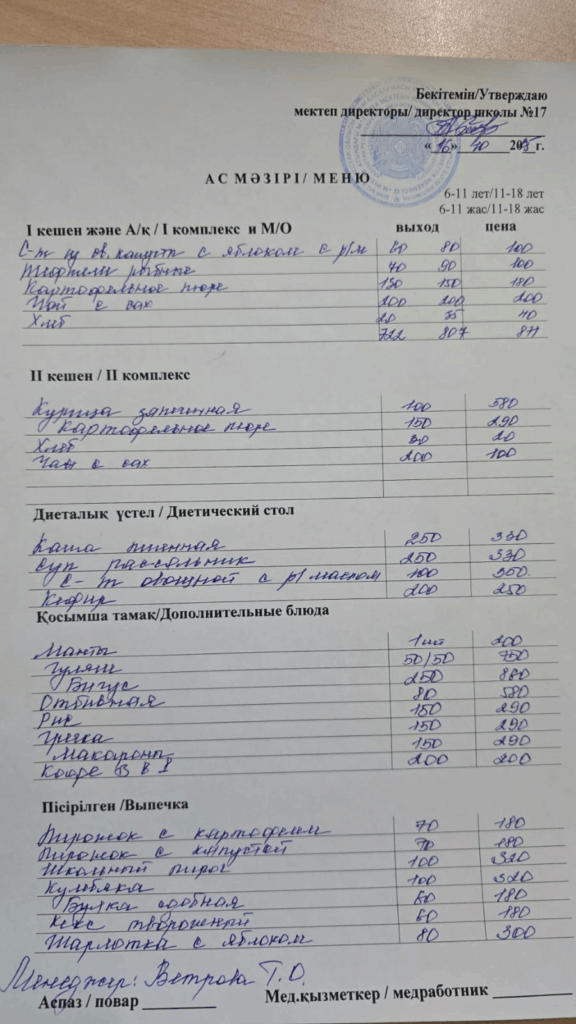 Бекітемін/Утверждаю
мектеп директоры/ директор школы №17
« 16» 10 2025 г.
АС МӘЗІРІ/ МЕНЮ
6-11 лет/11-18 лет
6-11 жас/11-18 жас
I кешен және А/қ / I комплекс и М/О выход цена
С-т из св. капусты с яблоком с р/м 60 80 100
Тефтели рыбные 70 90 100
Картофельное пюре 130 150 180
Чай с сах 200 200 200
Хлеб 20 35 40
722 807 871
II кешен / II комплекс
Курица запеченная 100 580
Картофельное пюре 150 290
Хлеб 20
Чай с сах 200 100
Диеталық үстел / Диетический стол
Каша пшенная 250 330
Суп рассольник 250 330
С-т овощной с р/маслом 100 350
Кефир 200 250
Қосымша тамақ/Дополнительные блюда
Манты 1 шт 200
Гуляш 50/50 750
Бигус 250 880
Отбивная 80 580
Рис 150 290
Гречка 150 290
Макароны 150 290
Кофе 3 в 1 200 200
Пісірілген /Выпечка
Пирожок с картофелем 70 180
Пирожок с капустой 70 180
Школьный пирог 100 320
Кулебяка 100 320
Булка сдобная 60 180
Кекс творожный 60 180
Шарлотка с яблоком 80 300
Менеджер: Ветрова Т.О.
Аспаз / повар Мед.қызметкер / медработник